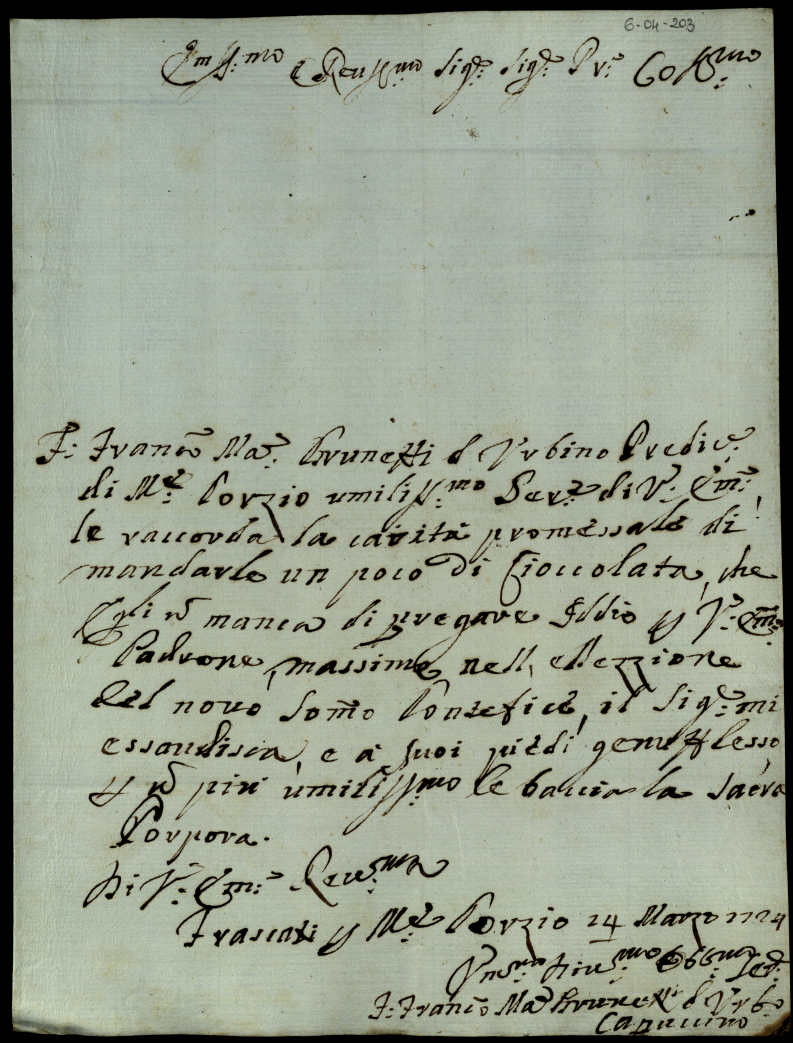 6-04-203
Em:ssmo e Reu:ssmo Sig:e Sig:e Pr:e Col:mo
F: Franc:o Ma: Brunetti d Vrbino Predic:e
di M:te Porzio umiliss:mo Ser:e di V: Em:
le raccorda la carità promessale di
mandarle un poco di Cioccolata, che
egli ñ manca di pregare Iddio p V: Em:
Padrone, massime nell, ellezzione
del novo Somo Pontefice, il Sig:e mi
essaudisca, e a suoi piedi genuflesso
p ñ più umiliss:mo le baccia la sacra
Porpora.
Di V: Em: Reu:ma
Frascati p M:te Porzio 24 Marzo 1724
Diu:mo Obb:mo Ser:
F: Franc:o Ma: Brunetti d Vrb:o
Capuccino